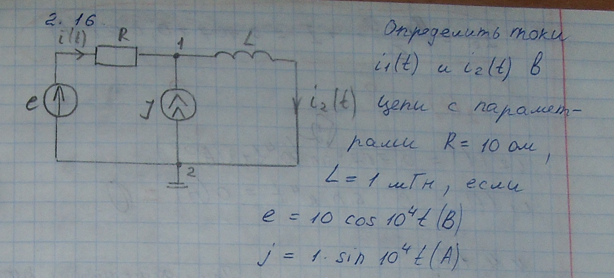 2.16
i(t) R 1 L
e j i₂(t)
2
Определить токи
i₁(t) и i₂(t) в
цепи с парамет-
рами R = 10 ом,
L = 1 мГн, если
e = 10 cos 10⁴t (В)
j = 1 · sin 10⁴t (А).